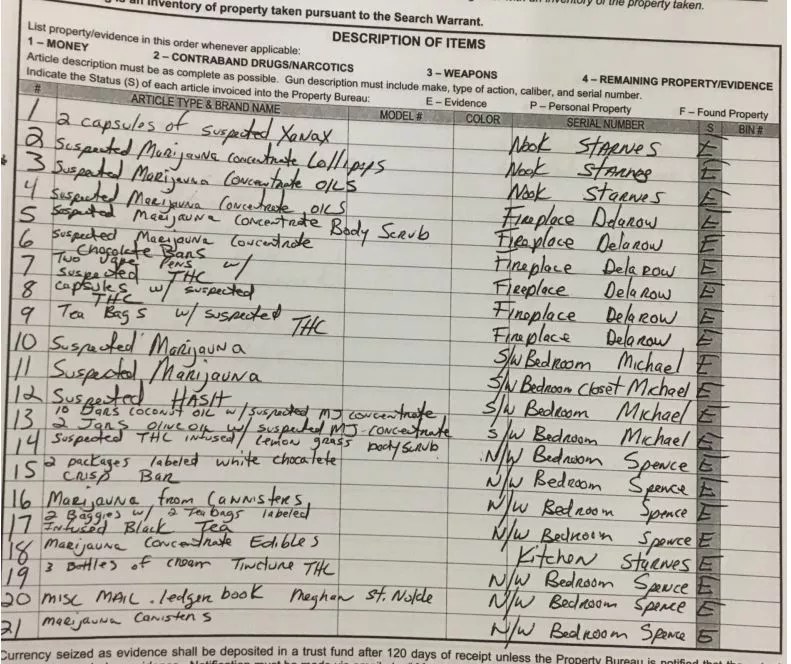 is an Inventory of property taken pursuant to the Search Warrant.
an inventory of the property taken.
DESCRIPTION OF ITEMS
List property/evidence in this order whenever applicable:
1 – MONEY 2 – CONTRABAND DRUGS/NARCOTICS 3 – WEAPONS 4 – REMAINING PROPERTY/EVIDENCE
Article description must be as complete as possible. Gun description must include make, type of action, caliber, and serial number.
Indicate the Status (S) of each article invoiced into the Property Bureau: E – Evidence P – Personal Property F – Found Property
# ARTICLE TYPE & BRAND NAME MODEL # COLOR SERIAL NUMBER S BIN #
1 2 capsules of suspected Xanax Nook STARNES E
2 Suspected Marijauna Concentrate Lollipops Nook STARNES E
3 Suspected Marijauna Concentrate OILS Nook STARNES E
4 Suspected Marijauna Concentrate OILS Fireplace Delarow E
5 Suspected Marijauna Concentrate Body Scrub Fireplace Delarow E
6 Suspected Marijauna Concentrate
Chocolate Bars Fireplace Delarow E
7 Two Vape Pens w/
suspected THC Fireplace Delarow E
8 capsules w/ suspected
THC Fireplace Delarow E
9 Tea Bags w/ suspected THC Fireplace Delarow E
10 Suspected Marijauna S/W Bedroom Michael E
11 Suspected Marijauna S/W Bedroom Closet Michael E
12 Suspected HASH S/W Bedroom Michael E
13 10 Jars coconut oil w/ suspected MJ concentrate
2 Jars olive oil w/ suspected MJ concentrate S/W Bedroom Michael E
14 Suspected THC infused/ lemon grass body scrub N/W Bedroom Spence E
15 2 packages labeled white chocalete
CRISP BAR N/W Bedroom Spence E
16 Marijauna from Cannisters N/W Bedroom Spence E
17 2 Baggies w/ 2 Teabags labeled
Infused Black Tea N/W Bedroom Spence E
18 Marijauna Concentrate Edibles Kitchen STARNES E
19 3 Bottles of cream Tincture THC N/W Bedroom Spence E
20 misc MAIL. ledger book Meghan St. Nolde N/W Bedroom Spence E
21 marijauna canisters N/W Bedroom Spence E
Currency seized as evidence shall be deposited in a trust fund after 120 days of receipt unless the Property Bureau is notified that the